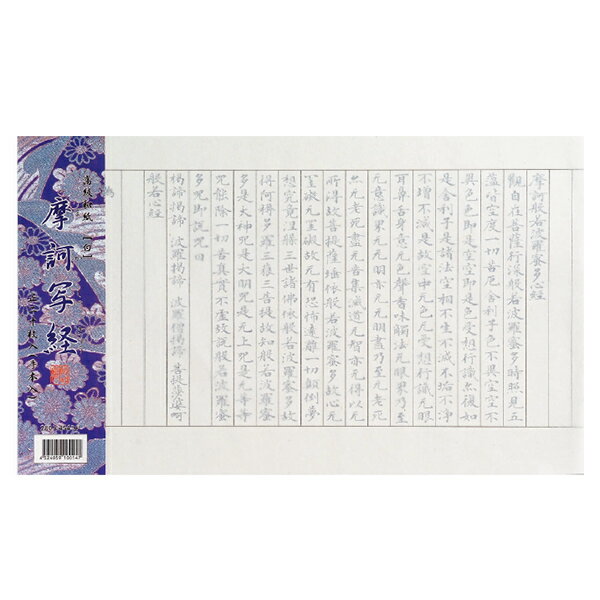 摩訶般若波羅蜜多心經
觀自在菩薩行深般若波羅蜜多時照見五
蘊皆空度一切苦厄舍利子色不異空空不
異色色即是空空即是色受想行識亦復如
是舍利子是諸法空相不生不滅不垢不淨
不增不減是故空中无色无受想行識无眼
耳鼻舌身意无色聲香味觸法无眼界乃至
无意識界无无明亦无无明盡乃至无老死
亦无老死盡无苦集滅道无智亦无得以无
所得故菩提薩埵依般若波羅蜜多故心无
罣礙无罣礙故无有恐怖遠離一切顛倒夢
想究竟涅槃三世諸佛依般若波羅蜜多故
得阿耨多羅三藐三菩提故知般若波羅蜜
多是大神咒是大明咒是无上咒是无等等
咒能除一切苦真實不虛故說般若波羅蜜
多咒即說咒曰
揭諦揭諦 波羅揭諦 波羅僧揭諦 菩提薩婆訶
般若心經
為
高級和紙【白】
摩訶写経
二十枚入(手本入)